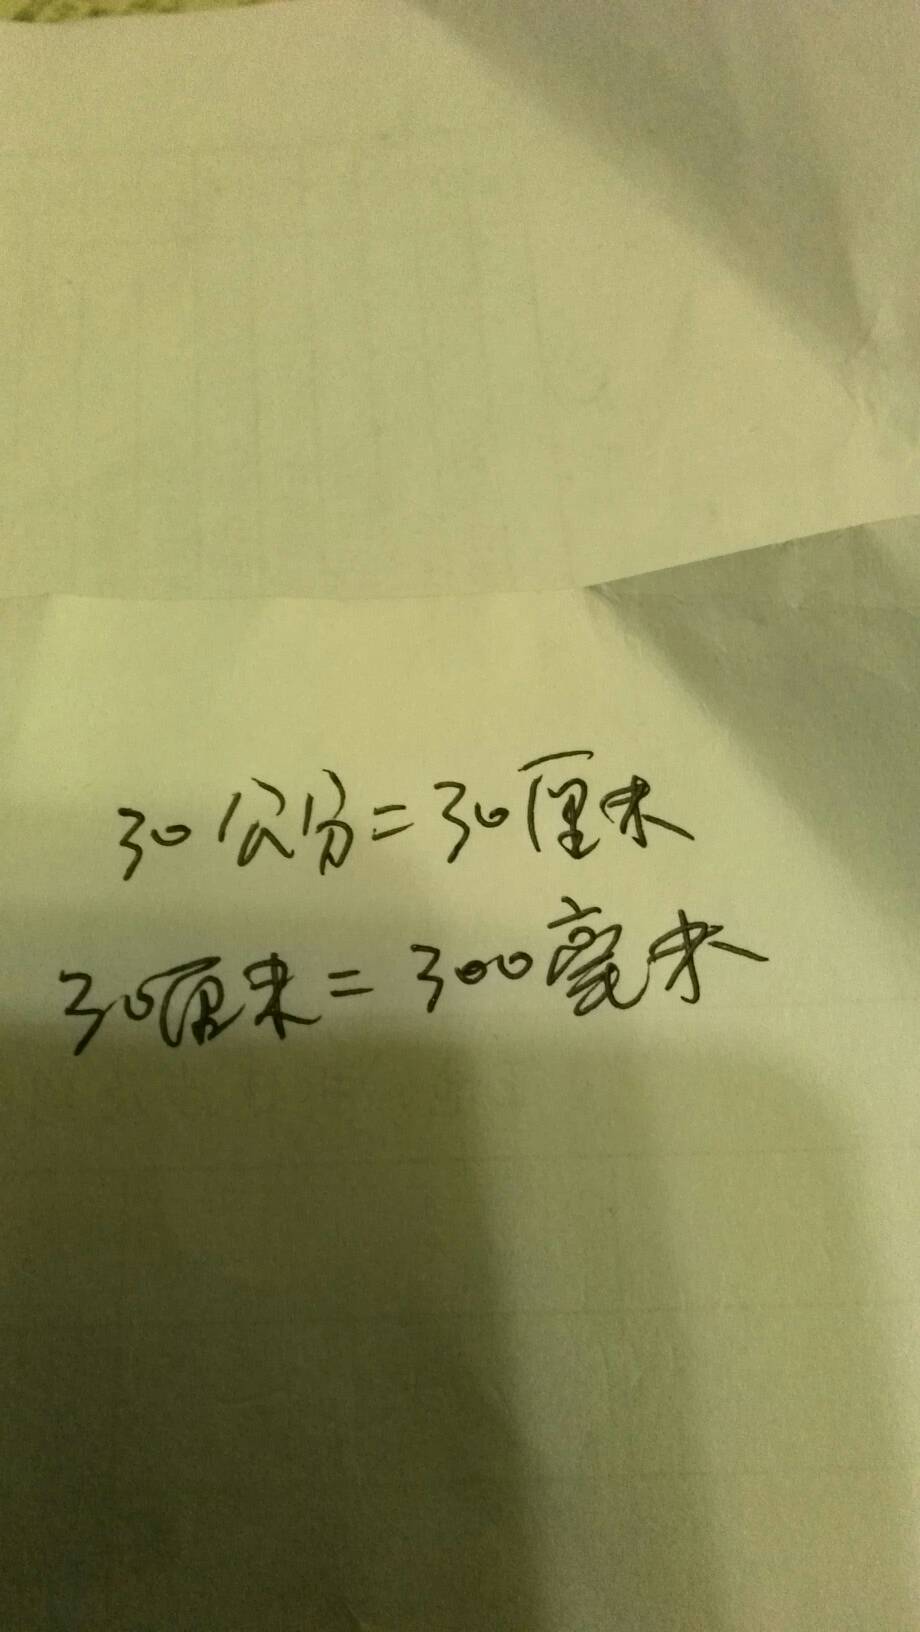 30公分=30厘米
30厘米=300毫米